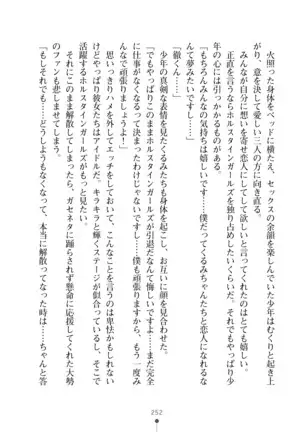 火照った身体をベッドに横たえ、セックスの余韻を楽しんでいた少年はむくりと起き上
がり、意を決して愛しい三人の方に向き直る。
みんなが自分に想いを寄せ恋人にしてして欲しいと言ってくれたのはとても嬉しい。
正直を言うならホルスタインガールズを独り占めしたいくらいだ。それでもやっぱり少
年の心には引っかかるものがあった。
「もちろんみんなの気持ちは嬉しいです……僕だってくるみちゃんたちと恋人になれる
なんて夢みたいです……でも……」
「徹くん……」
少年の真剣な表情を見たくるみたちも身体を起こし、お互いに顔を見合わせた。
「でもやっぱりこのままホルスタインガールズが引退だなんて悔しいですよ……まだ完全
に仕事がなくなると決まったわけじゃないですし……僕も頑張りますから、もう一度み
んなで頑張りましょうよ！」
思いっきりハメを外してエッチしておいて、こんなことを言うのは卑怯かもしれない
けどやっぱり彼女たちはアイドルだ。キラキラと輝くステージが似合っているし、そこで
活躍するホルスタインガールズがもっと見たい。
それにこのまま解散してしまったら、ガセネタに踊らされず懸命に応援してくれた大勢
のファンも悲しませてしまう。
「もしそれでも……どうしてもダメになっちゃって、本当に解散ってなった時は……ちゃんと答
252